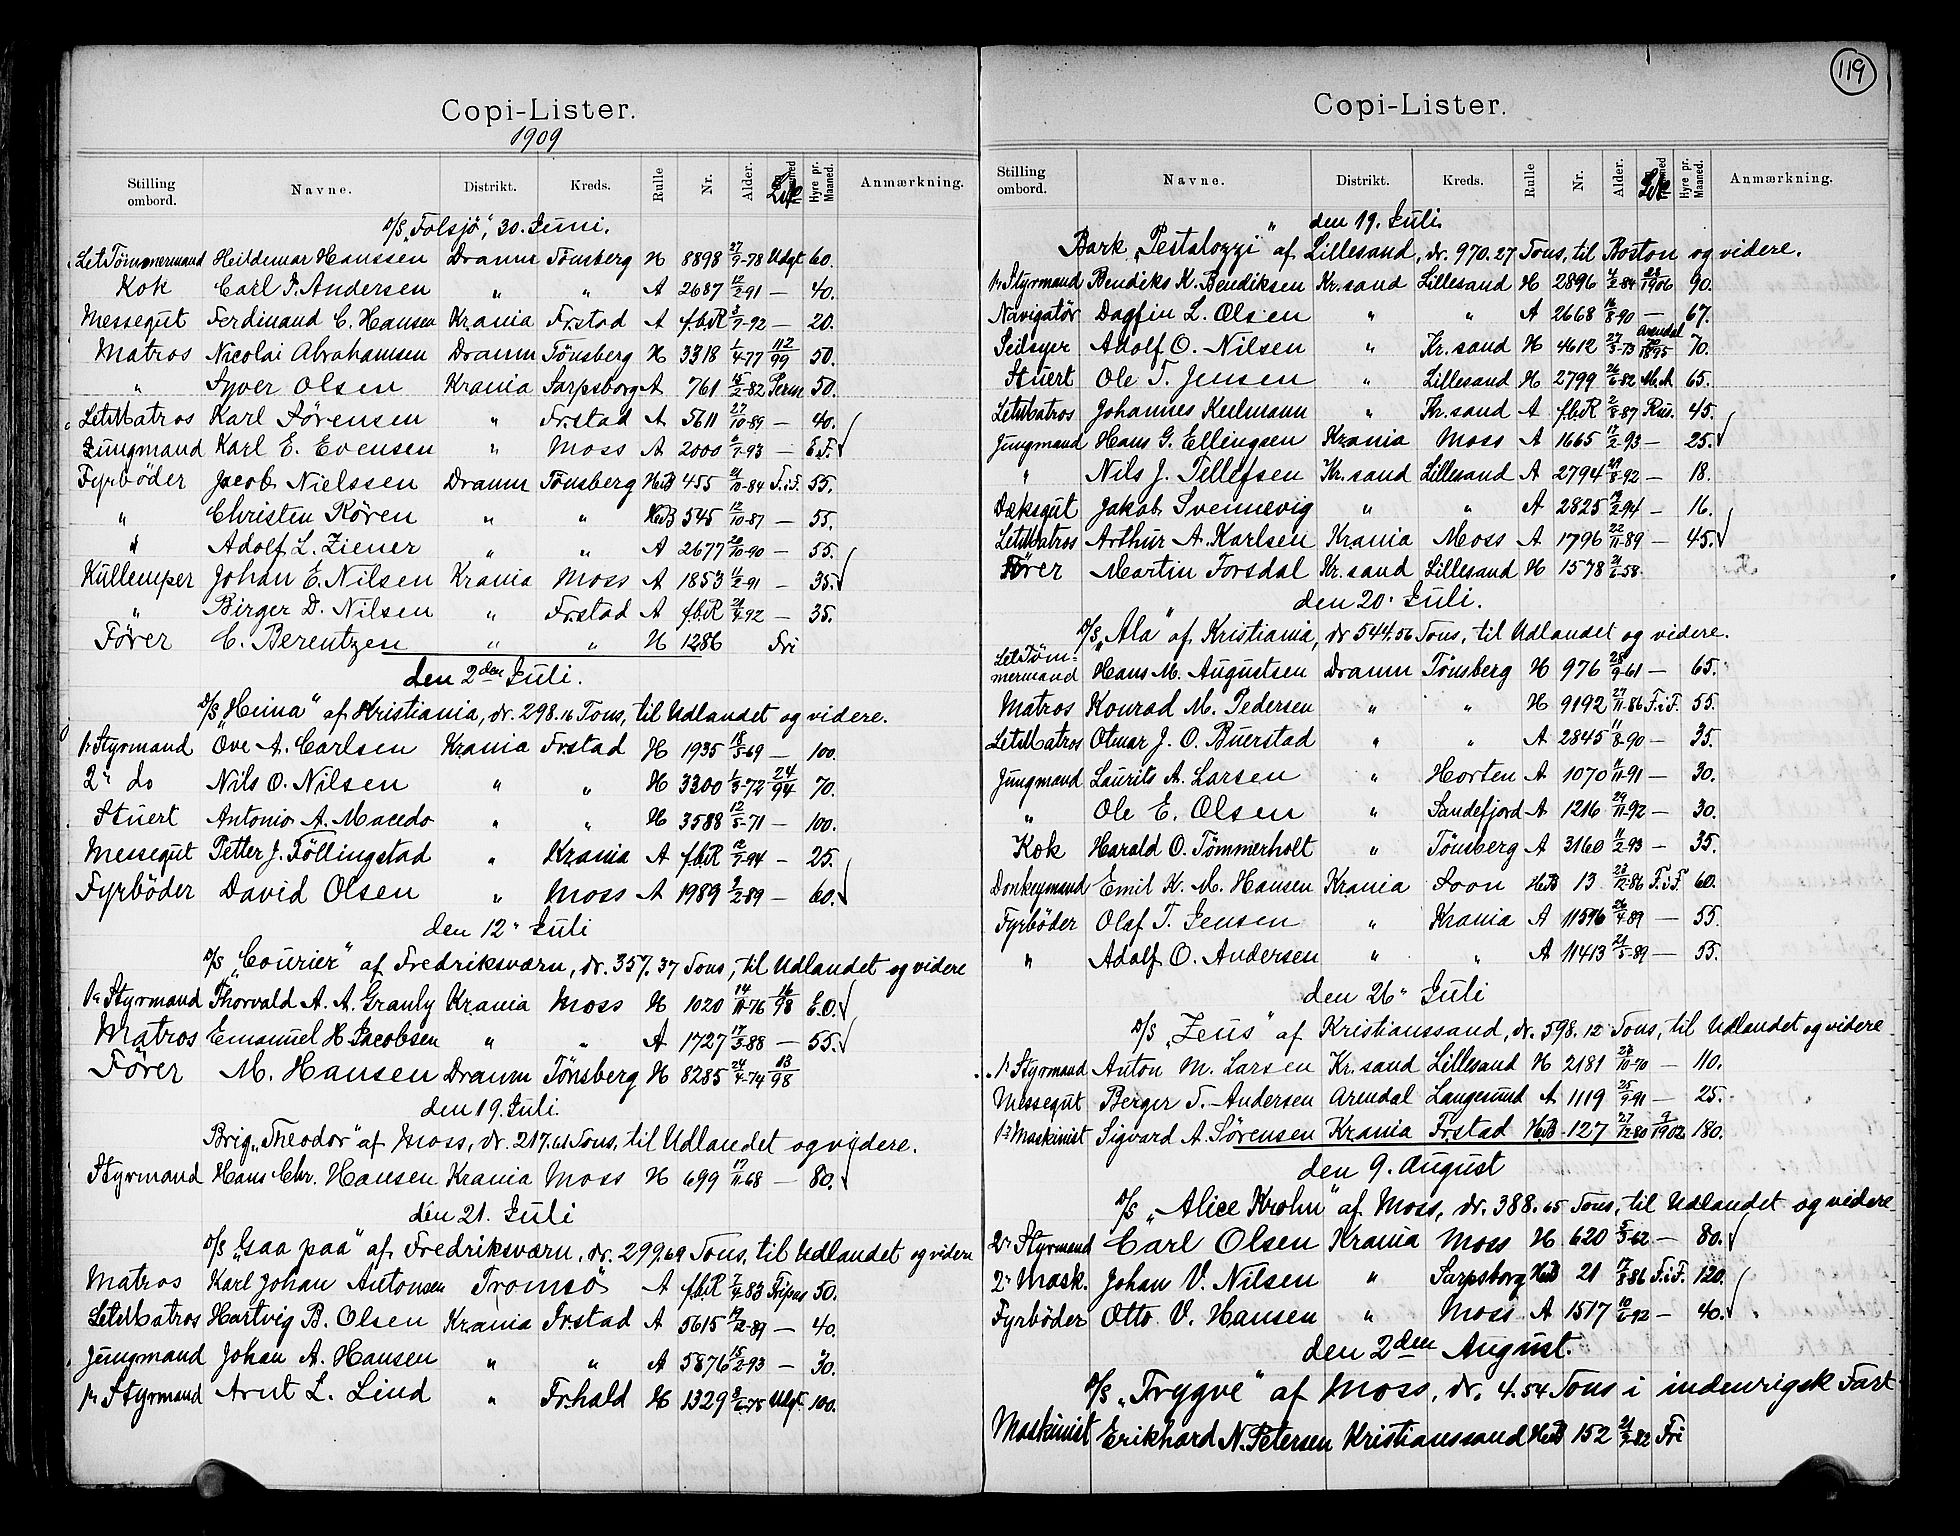 Copi-Lister.
1909
Stilling ombord. Navne. Distrikt. Kreds. Rulle Nr. Alder. Hyre pr. Maaned. Anmærkning.
D/S „Folsjö", 30. Juni.
LetTømmermand Heildemar Hanssen Dramm Tönsberg H 8898 27/7-78 Udgt 60.
Kok Carl F. Andersen " " A 2687 12/2-91 — 40.
Messegut Ferdinand C. Hansen Krania Fr.stad A f.b.R 3/7-92 — 20.
Matros Nicolai Abrahamsen Dramm Tönsberg H 3318 1/4-77 112/99 50.
" Syver Olsen Krania Sarpsborg A 761 15/2-82 Perm 50.
LetMatros Karl Sørensen " Fr.stad A 5611 27/10-89 — 40.
Jungmand Karl E. Evensen " Moss A 2000 2/7-93 — E.F.
Fyrböder Jacob Nielssen Dramm Tönsberg HvB 455 21/10-84 F.i.F. 55.
" Christen Rören " " HvB 545 12/10-87 — 55.
" Adolf L. Ziener " " A 2677 20/10-90 — 55.
Kullemper Johan E. Nilsen Krania Moss A 1853 11/2-91 — 35.
" Birger D. Nilsen " Fr.stad A f.b.R 21/4-92 — 35.
Förer C. Berentzen " " H 1286 Fri
den 2den Juli.
D/S „Heina" af Kristiania, dr. 298.16 Tons, til Udlandet og videre.
1ste Styrmand Ove A. Carlsen Krania Fr.stad H 1935 18/5-69 — 100.
2n do Nils O. Nilsen " " H 3300 1/3-72 24/94 70.
Stuert Antonio A. Macedo " " H 3588 12/5-71 — 100.
Messegut Petter J. Föllingstad " Krania A f.b.R 12/7-94 — 25.
Fyrböder David Olsen " Moss A 1989 9/2-89 — 60.
den 12" Juli
D/S „Courier" af Fredriksværn, dr. 357.37 Tons, til Udlandet og videre
1ste Styrmand Thorvald A. A. Granly Krania Moss H 1020 14/11-76 16/98 E.O.
Matros Emanuel H. Jacobsen " " A 1727 17/3-88 — 55.
Förer M. Hansen Dramm Tönsberg H 8285 24/4-74 13/98
den 19. Juli.
Brig „Theodor" af Moss, dr. 217.61 Tons, til Udlandet og videre.
Styrmand Hans Chr. Hansen Krania Moss H 699 17/11-68 — 80.
den 21. Juli
D/S „Gaa paa" af Fredriksværn, dr. 299,69 Tons, til Udlandet og videre
Matros Karl Johan Antonsen Tromsö A f.b.R 7/4-83 50.
LetMatros Hartvig B. Olsen Krania Fr.stad A 5615 17/12-89 — 40.
Jungmand Johan A. Hansen " " A 5876 15/2-93 — 30.
1ste Styrmand Arnt L. Lind " Fr.hald H 1329 2/6-75 Udgt. 100.
119
Copi-Lister.
Stilling ombord. Navne. Distrikt. Kreds. Rulle Nr. Alder. Hyre pr. Maaned. Anmærkning.
den 19. Juli.
Bark „Pestalozzi" af Lillesand, dr. 970.27 Tons, til Boston og videre.
1ste Styrmand Bendiks K. Bendiksen Kr.sand Lillesand H 2896 4/2-84 23/1906 90.
Navigatör Dagfin L. Olsen " " A 2668 16/8-90 — 67.
Seilsyer Adolf O. Nilsen " Kr.sand H 4612 27/3-73 Arendal 70/1895 70.
Stuert Ole T. Jensen " Lillesand H 2799 26/6-82 M.A. 65.
LetMatros Johannes Keilmann " Kr.sand A f.b.R 2/8-87 Rus. 45.
Jungmand Hans G. Ellingsen Krania Moss A 1665 17/2-93 — 25.
" Nils J. Tellefsen Kr.sand Lillesand A 2794 29/8-92 — 18.
Dæksgut Jakob Svennevig " " A 2825 12/2-94 — 16.
LetMatros Arthur A. Karlsen Krania Moss A 1796 22/11-89 — 45.
Förer Martin Torsdal Kr.sand Lillesand H 1578 21/6-58
den 20" Juli.
D/S „Ala" af Kristiania, dr 544.56 Tons, til Udlandet og videre.
LetTömmermand Hans M. Augustsen Dramm Tönsberg H 976 28/9-61 — 65.
Matros Konrad M. Pedersen " " H 9192 27/11-86 F.i.F. 55.
LetMatros Otmar J. O. Buerstad " " A 2845 11/8-90 — 35.
Jungmand Laurits A. Larsen " Horten A 1070 11/11-91 — 30.
" Ole E. Olsen " Sandefjord A 1216 29/11-92 — 30.
Kok Harald O. Tömmerholt " Tönsberg A 3160 11/2-93 — 35.
Donkeymand Emil K. M. Hansen Krania Soon HvB 13 23/12-86 F.i.F. 60.
Fyrböder Olaf T. Jensen " Krania A 11596 26/4-89 — 55.
" Adolf O. Andersen " " A 11413 21/5-89 — 55.
den 26" Juli
D/S „Zeus" af Kristianssand, dr. 598.12 Tons, til Udlandet og videre
1ste Styrmand Anton M. Larsen Kr.sand Lillesand H 2181 23/10-70 — 110.
Messegut Berger T. Andersen Arendal Langesund A 1119 25/9-91 — 25.
1ste Maskinist Sigvard A. Sörensen Krania Fr.stad HvB 127 27/12-80 9/1902 180.
den 9. August
D/S „Alice Krohn" af Moss, dr. 388.65 Tons, til Udlandet og videre
2n Styrmand Carl Olsen Krania Moss H 620 5/5-62 — 80.
2n Mask. Johan V. Nilsen " Sarpsborg HvB 21 17/8-86 F.i.F. 120.
Fyrböder Otto V. Hansen " Moss A 1517 10/6-92 — 40.
den 2den August.
D/S „Trygve" af Moss, dr. 4.54 Tons i indenrigsk Fart
Maskinist Erikhard N. Petersen Kristianssand HvB 152 21/7-82 Fri